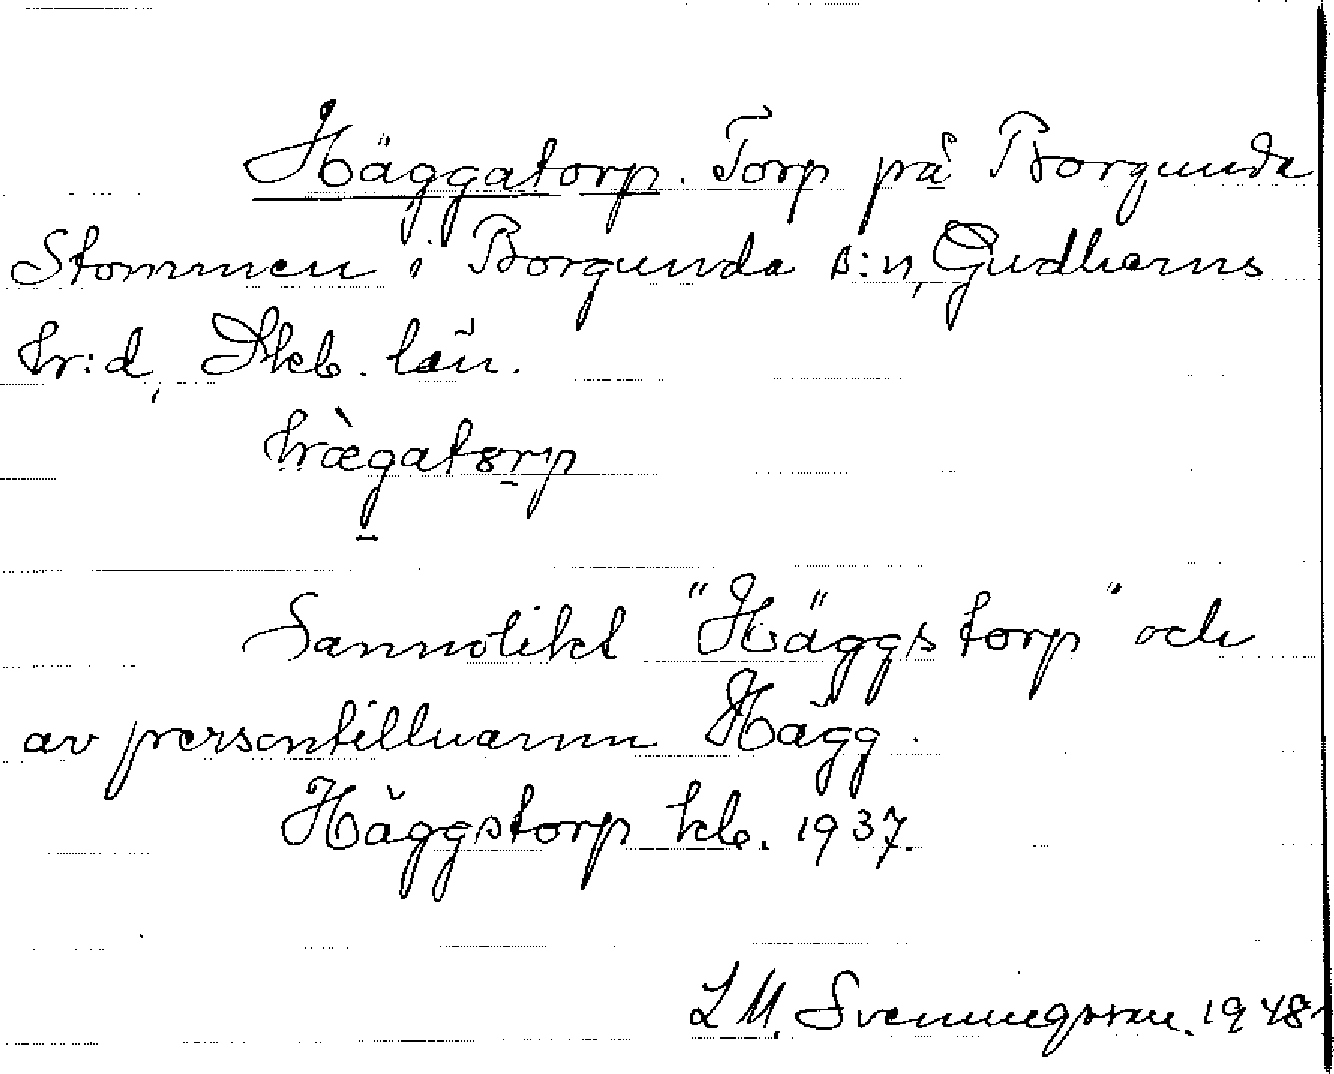 Häggatorp. Torp på Borgunda
Stommen i Borgunda s:n, Gudhems
hr:d, Skb. län.
hæ̀gatorp
Sannolikt "Häggstorp" och
av persontillnamn Hägg.
Häggstorp kb. 1937.
L M. Svenungsson. 1948